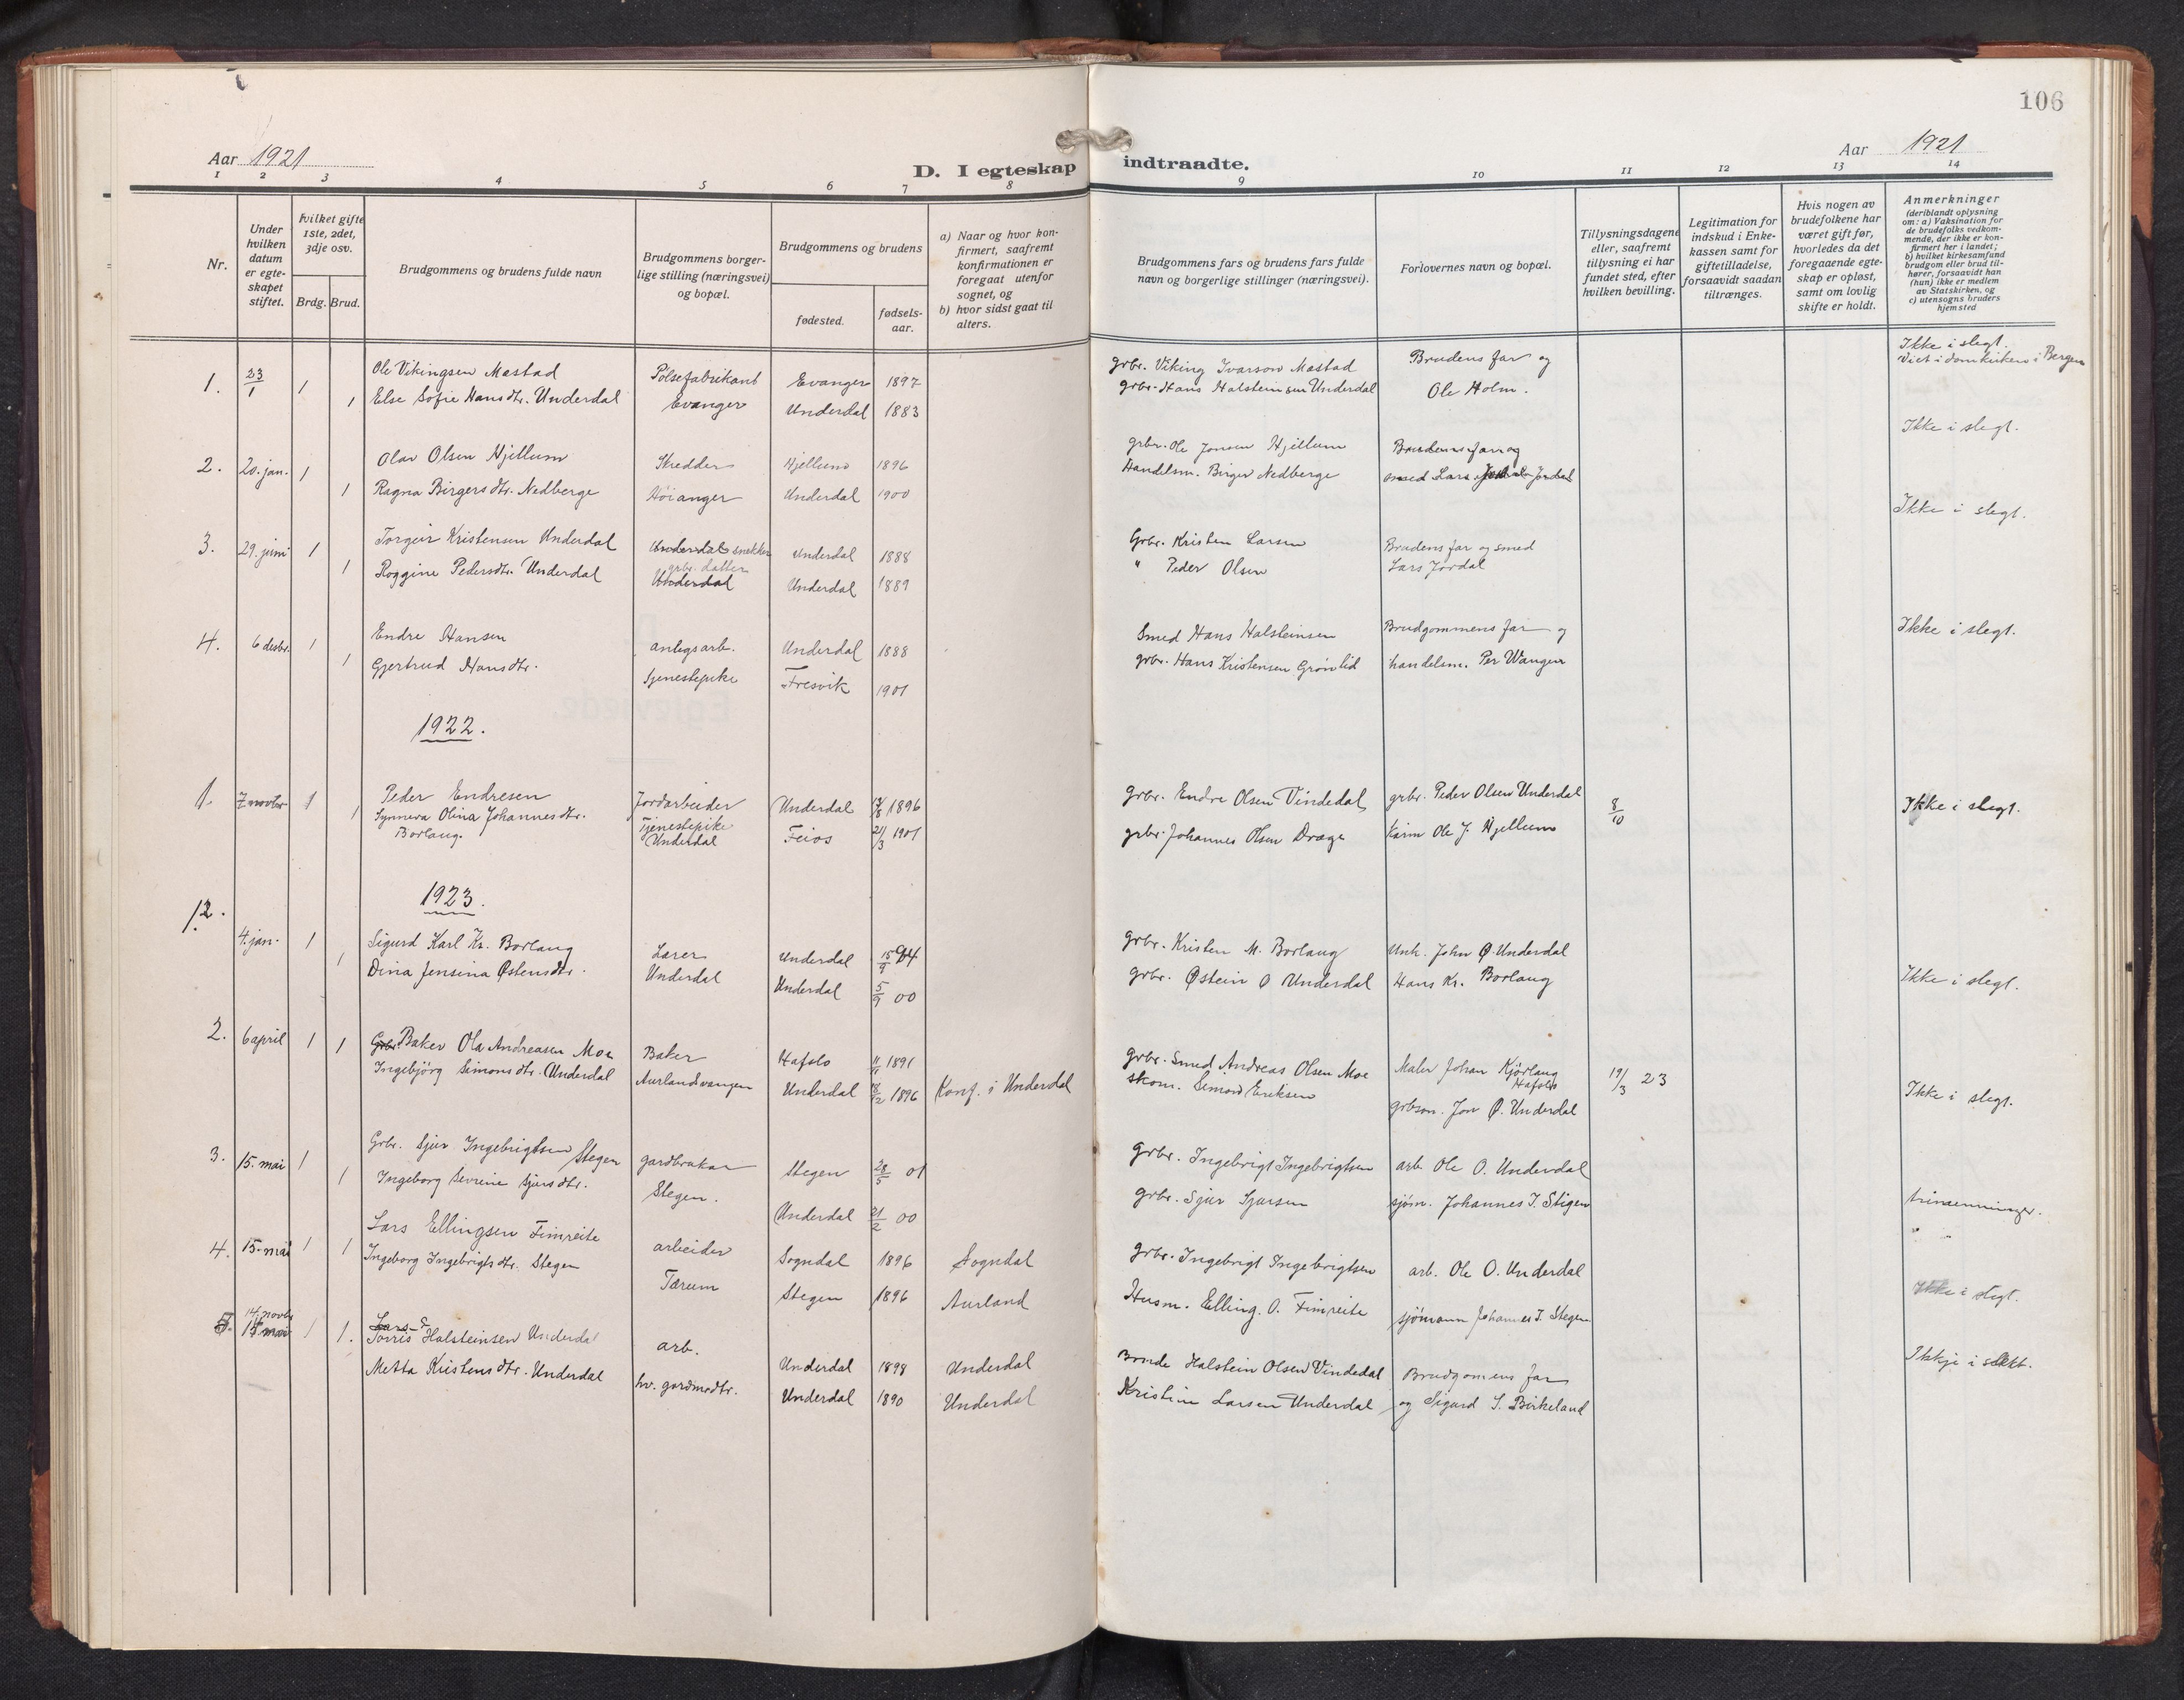 106
Aar 1921
D. I egteskap indtraadte.
Aar 1921
1 2 3 4 5 6 7 8 9 10 11 12 13 14
Nr.
Under hvilken datum er egteskapet stiftet.
hvilket gifte 1ste, 2det, 3dje osv.
Brdg. Brud.
Brudgommens og brudens fulde navn
Brudgommens borgerlige stilling (næringsvei) og bopæl.
Brudgommens og brudens
fødested.
fødselsaar.
a) Naar og hvor konfirmert, saafremt konfirmationen er foregaat utenfor sognet, og
b) hvor sidst gaat til alters.
Brudgommens fars og brudens fars fulde navn og borgerlige stillinger (næringsvei).
Forlovernes navn og bopæl.
Tillysningsdagene eller, saafremt tillysning ei har fundet sted, efter hvilken bevilling.
Legitimation for indskud i Enkekassen samt for giftetilladelse, forsaavidt saadan tiltrænges.
Hvis nogen av brudefolkene har været gift før, hvorledes da det foregaaende egteskap er opløst, samt om lovlig skifte er holdt.
Anmerkninger
(deriblandt oplysning om: a) Vaksination for de brudefolks vedkommende, der ikke er konfirmert her i landet; b) hvilket kirkesamfund brudgom eller brud tilhører, forsaavidt han (hun) ikke er medlem av Statskirken, og c) utensogns bruders hjemsted
1. 23/1 1 Ole Vikingsen Mestad Pølsefabrikant Evanger 1897 grbr. Viking Ivarson Mestad Brudens far og Ikke i slegt. Viet i domkirken i Bergen
1 Else Sofie Hansdtr. Underdal Evanger Underdal 1883 grbr. Hans Halsteinsen Underdal Ole Holm.
2. 20. jan. 1 Olav Olsen Hjellum Skredder Hjellum 1896 grbr. Ole Jonsen Hjellum Brudens far og Ikke i slegt.
1 Ragna Birgersdtr. Nedberge Høianger Underdal 1900 Handelsm. Birger Nedberge smed Lars Jordal
3. 29. juni 1 Torgeir Kristensen Underdal Underdal snekker Underdal 1888 Grbr. Kristen Larsen Brudens far og smed Ikke i slegt.
1 Roggine Pedersdtr. Underdal grbr. datter Underdal Underdal 1889 " Peder Olsen Lars Jordal
4. 6 desbr. 1 Endre Hansen anlegsarb. Underdal 1888 Smed Hans Halsteinsen Brudgommens far og Ikke i slegt.
1 Gjertrud Hansdtr. tjenestepike Fresvik 1901 grbr. Hans Kristensen Grønlid handelsm. Per Wangen
1922.
1. 7 novbr 1 Peder Endresen Jordarbeider Underdal 1896 grbr. Endre Olsen Vindedal grbr. Peder Olsen Underdal 8/10 Ikke i slegt.
1 Synneva Olina Johannesdtr. Borlaug. Tjenestepike Underdal Feios 21/3 1901 grbr. Johannes Olsen Dræge Ole J. Hjellum
1923.
1. 4. jan. 1 Sigurd Karl Kr. Borlaug Lærer Underdal 15/9 94 grbr. Kristen M. Borlaug Unk. John Ø. Underdal
1 Dina Jensina Østensdtr. Underdal Underdal 5/9 00 grbr. Østein Ø Underdal Hans Kr. Borlaug Ikke i slegt.
2. 6 april 1 1 Grbr. Baker Ola Andreasen Moe Baker Hafslo 1891 grbr. smed Andreas Olsen Moe Maler Johan Kjørlaug Hafslo 19/3 23
Ingebjörg Simonsdtr. Underdal Aurlandsvangen Underdal 1896 Konf. i Underdal skom. Simon Eriksen grbson. Jon Ø. Underdal Ikke i slegt.
3. 15. mai 1 Grbr. Sjur Ingebrigtsen Stegen gardbrukar Stegen 28/5 01 Grbr. Ingebrigt Ingebrigtsen arb Ole O. Underdal
1 Ingeborg Sevrine Sjursdtr. Stegen. Underdal 21/2 00 grbr. Sjur Sjursen sjøm. Johannes I. Stigen trimenninger.
4. 15. mai 1 1 Lars Ellingsen Fimreite arbeider Sogndal 1896 Sogndal grbr. Ingebrigt Ingebrigtsen arb. Ole O. Underdal
Ingeborg Ingebrigtsdtr. Stegen Tærum Stegen 1896 Aurland Husm. Elling. O. Fimreite sjömann Johannes I. Stegen Ikke i slegt.
5. 14 novbr 15 mai 1 1. Lars Torris Halsteinsen Underdal arb. Underdal 1898 Underdal Bonde Halstein Olsen Vindedal Brudgomens far Ikkje i slekt.
Metta Kristensdtr. Underdal hv. gardmdtr. Underdal 1890 Underdal Kristen Larsen Underdal og Sigurd S. Birkeland